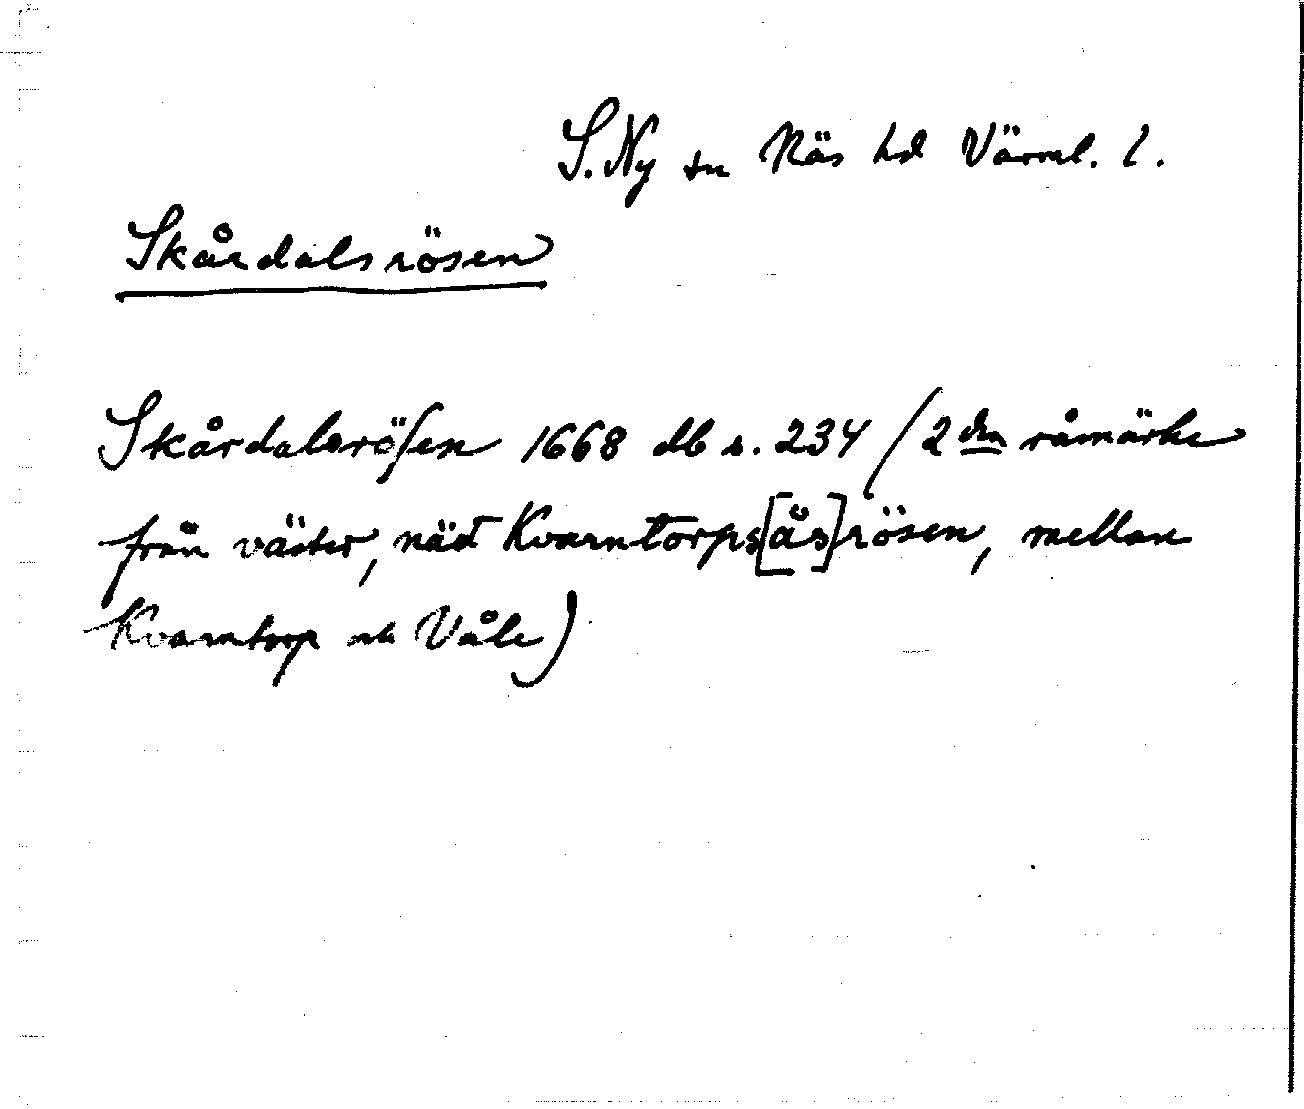 S. Ny sn Näs hd Värml. l.
Skårdalsrösen
Skårdalsrösen 1668 db s. 234 (2dra råmärke
från väster, näst Kvarntorps[ås]rösen, mellan
Kvarntorp och Våle)